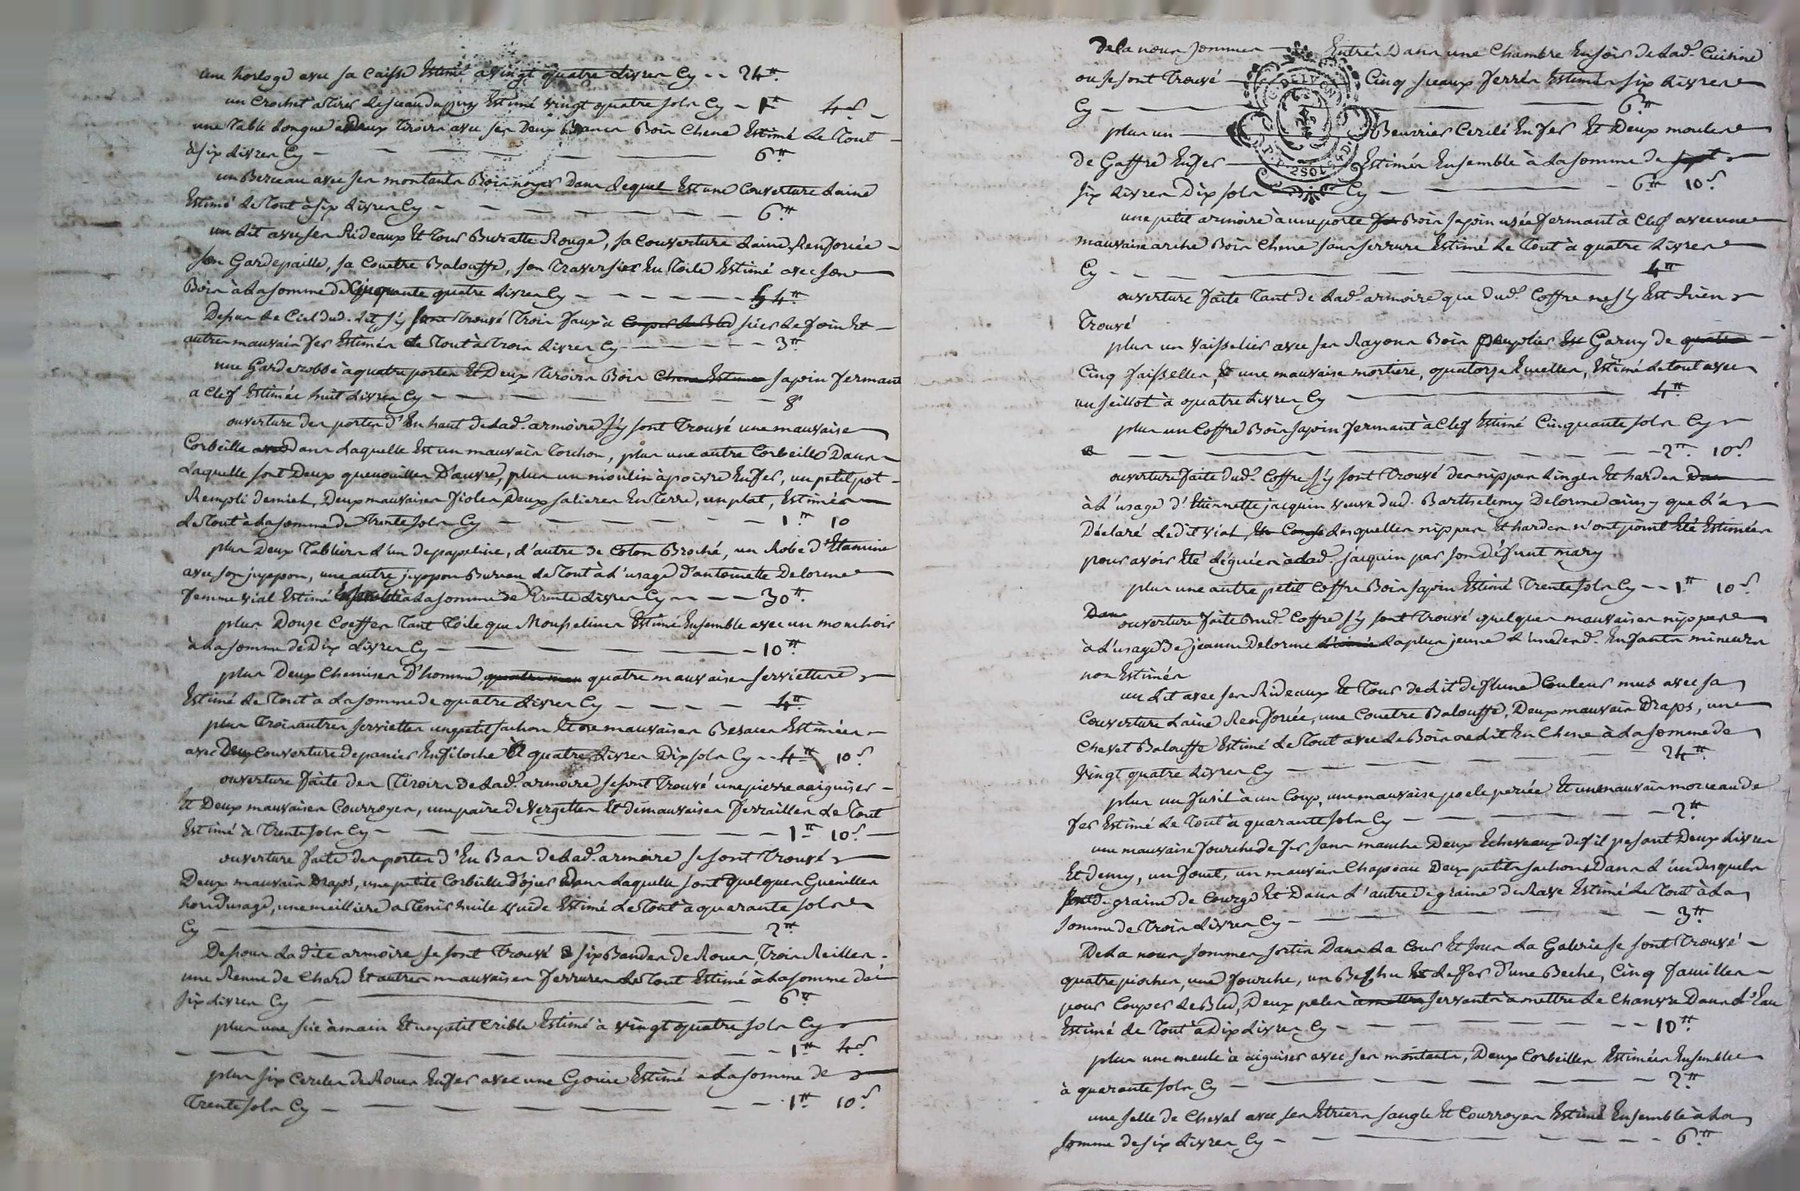 une horloge avec sa caisse Estimé à vingt quatre Livres Cy - - 24.tt
un Crochet a tirer Estimé vingt quatre sols Cy - 1.tt 4.s
une table Longue à Deux tiroirs avec ses Deux Bancs Bois Chene Estimé Le tout
à six Livres Cy - 6.tt
un Berceau avec ses montants Bois noyer Dans Lequel Est une Couverture Laine
Estimé Le tout à six Livres Cy - 6.tt
un Lit avec ses Rideaux Et tour Buratte Rouge, sa Couverture Laine
son Gardepaille, sa Couetre Balouffe, son traversier En toile Estimé avec son
Bois à La somme de Cinquante quatre Livres Cy - 54.tt
Dessus Le Ciel dud. Lit s'y sont trouvé trois faux à Couper Le Bled Le foin Et
autres mauvais fer Estimés Le tout à trois Livres Cy - 3.tt
une Garderobbe à quatre portes Et Deux tiroirs Bois Chene Estimee sapin fermant
a Clef Estimée huit Livres Cy - 8
ouverture des portes d'En haut de Lad. armoire s'y sont trouvé une mauvaise
Corbeille avec Dans Laquelle Est un mauvais torchon, plus une autre Corbeille Dans
Laquelle sont Deux quenouilles D'auvre, plus un moulin à poivre En fer, un petit pot
Rempli de miel, Deux mauvaises fioles, Deux salieres En terre, un plat, Estimés
Le tout à La somme de trente sols Cy - 1.tt 10
plus Deux tabliers L'un de papeline, L'autre de Coton Broché, un Robe d'Etamine
avec son juppon, une autre juppon Bureau Le tout à L'usage d'antoinette Delorme
femme vial Estimé à La somme de trente Livres Cy - 30.tt
plus Douze Coeffes tant toile que Mousseline Estimé Ensemble avec un mouchoir
à La somme de Dix Livres Cy - 10.tt
plus Deux Chemises D'homme quatre mauvaises serviettes
Estimé Le tout à La somme de quatre Livres Cy - 4.tt
plus trois autres serviettes un petit sachon Et une mauvaises Besaces Estimées
avec Deux Couverture de panier En filoche à quatre Livres Dix sols Cy - 4.tt 10.s
ouverture faite des tiroirs de Lad. armoire se sont trouvé une pierre a aiguiser
Et Deux mauvaises Courroyes, une paire de vergettes Et de mauvaises ferrailles Le tout
Estimé à trente sols Cy - 1.tt 10.s
ouverture faite des portes d'En Bas de Lad. armoire se sont trouvé
Deux mauvais Draps, une petite Corbeille d'osier Dans Laquelle sont quelques Guenilles
hors d'usage, une a tenir huile vuide Estimé Le tout à quarante sols
Cy - 2.tt
Dessous La dite armoire se sont trouvé six Bandes de Roues, trois Reilles
une Renne de Chard Et autres mauvaises ferrures Le tout Estimé à La somme de
six Livres Cy - 6.tt
plus une sie à main Et un petit Crible Estimé à vingt quatre sols Cy
- 1.tt 4.s
plus six Cercles de Roues En fer avec une Goiue Estimé a La somme de
trente sols Cy - 1.tt 10.s
De La nous sommes Entrés Dans une Chambre En soir de Lad. Cuisine
ou se sont trouvé Cinq sceaux ferrés Estimés six Livres
Cy - 6.tt
plus un Beurrier Cerclé En fer Et Deux moules
de Gaffre En fer Estimés Ensemble à La somme de sept
six Livres Dix sols Cy - 6.tt 10.s
une petit armoire à une porte Bois sapin usée fermant à Clef avec une
mauvaise arche Bois Chene sans serrure Estimé Le tout à quatre Livres
Cy - 4.tt
ouverture faite tant de Lad. armoire que dud. Coffre ne s'y Est Rien
trouvé
plus un vaisselier avec ses Rayons Bois peuplier Garny de quatre
Cinq faisselles, Et une mauvaise mortiere, quatorze Cuellers, Estimé Le tout avec
un seillot à quatre Livres Cy - 4.tt
plus un Coffre Bois sapin fermant à Clef Estimé Cinquante sols Cy
- 2.tt 10.s
ouverture faite dud. Coffre s'y sont trouvé des nippes Linges Et hardes
à L'usage d'Etiennette jacquin veuve dud. Barthelemy Delorme ainsy que L'a
Déclaré Ledit vial, Lesquelles nippes Et hardes n'ont point Eté Estimées
pour avoir Eté Léguées à Lad. jacquin par son Défunt mary
plus une autre petit Coffre Bois sapin Estimé trente sols Cy - - 1.tt 10.s
Dans ouverture faite dud. Coffre s'y sont trouvé quelques mauvaises nippes
à L'usage De jeanne Delorme La plus jeune L'une desd. Enfants mineurs
non Estimés
un Lit avec ses Rideaux Et tour de Lit Couleur avec sa
Couverture Laine Renforiée, une Couetre Balouffe, Deux mauvais Draps, une
Chevet Balouffe Estimé Le tout avec Le Bois Lit En Chene à La somme de
vingt quatre Livres Cy - 24.tt
plus un fusil à un Coup, une mauvaise poele percée Et un mauvais morceau de
fer Estimé Le tout à quarante sols Cy - 2.tt
une mauvaise fourche de fer sans manche Deux Echeveaux de fil pesant Deux Livres
Et Demy, un fouet, un mauvais Chapeau Deux petits sachons Dans L'un desquels
graine de Courge Et Dans L'autre de graine de Rave Estimé Le tout à La
somme de trois Livres Cy - 3.tt
De La nous sommes sortis Dans La Cour Et sous La Galerie se sont trouvé
quatre pioches, une fourche, un Le fer d'une Beche, Cinq faucilles
pour Couper Le Bled, Deux peles servants à mettre Le Chanvre Dans L'Eau
Estimé Le tout à Dix Livres Cy - 10.tt
plus une meule à aiguiser avec ses montants, Deux Corbeilles Estimées Ensemble
à quarante sols Cy - 2.tt
une selle de Cheval avec ses Etriers sangle Et Courroyes Estimé Ensemble à La
somme de six Livres Cy - 6.tt